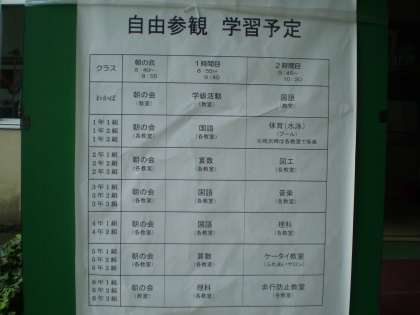 自由参観 学習予定
クラス 朝の会 1時間目 2時間目
8:40～ 8:55～ 9:45～
8:55 9:40 10:30
わかば 朝の会 学級活動 国語
(教室) (教室) (教室)
1年1組 朝の会 国語 体育(水泳)
1年2組 (各教室) (各教室) (プール)
1年3組
2年1組 朝の会 算数 図工
2年2組 (各教室) (各教室) (各教室)
2年3組
3年1組 朝の会 国語 音楽
3年2組 (各教室) (各教室) (各教室)
3年3組
4年1組 朝の会 国語 理科
4年2組 (各教室) (各教室) (各教室)
5年1組 朝の会 算数 ケータイ教室
5年2組 (各教室) (各教室) (ふれあいサロン)
5年3組
6年1組 朝の会 理科 非行防止教室
6年2組 (教室) (各教室) (各教室)
6年3組